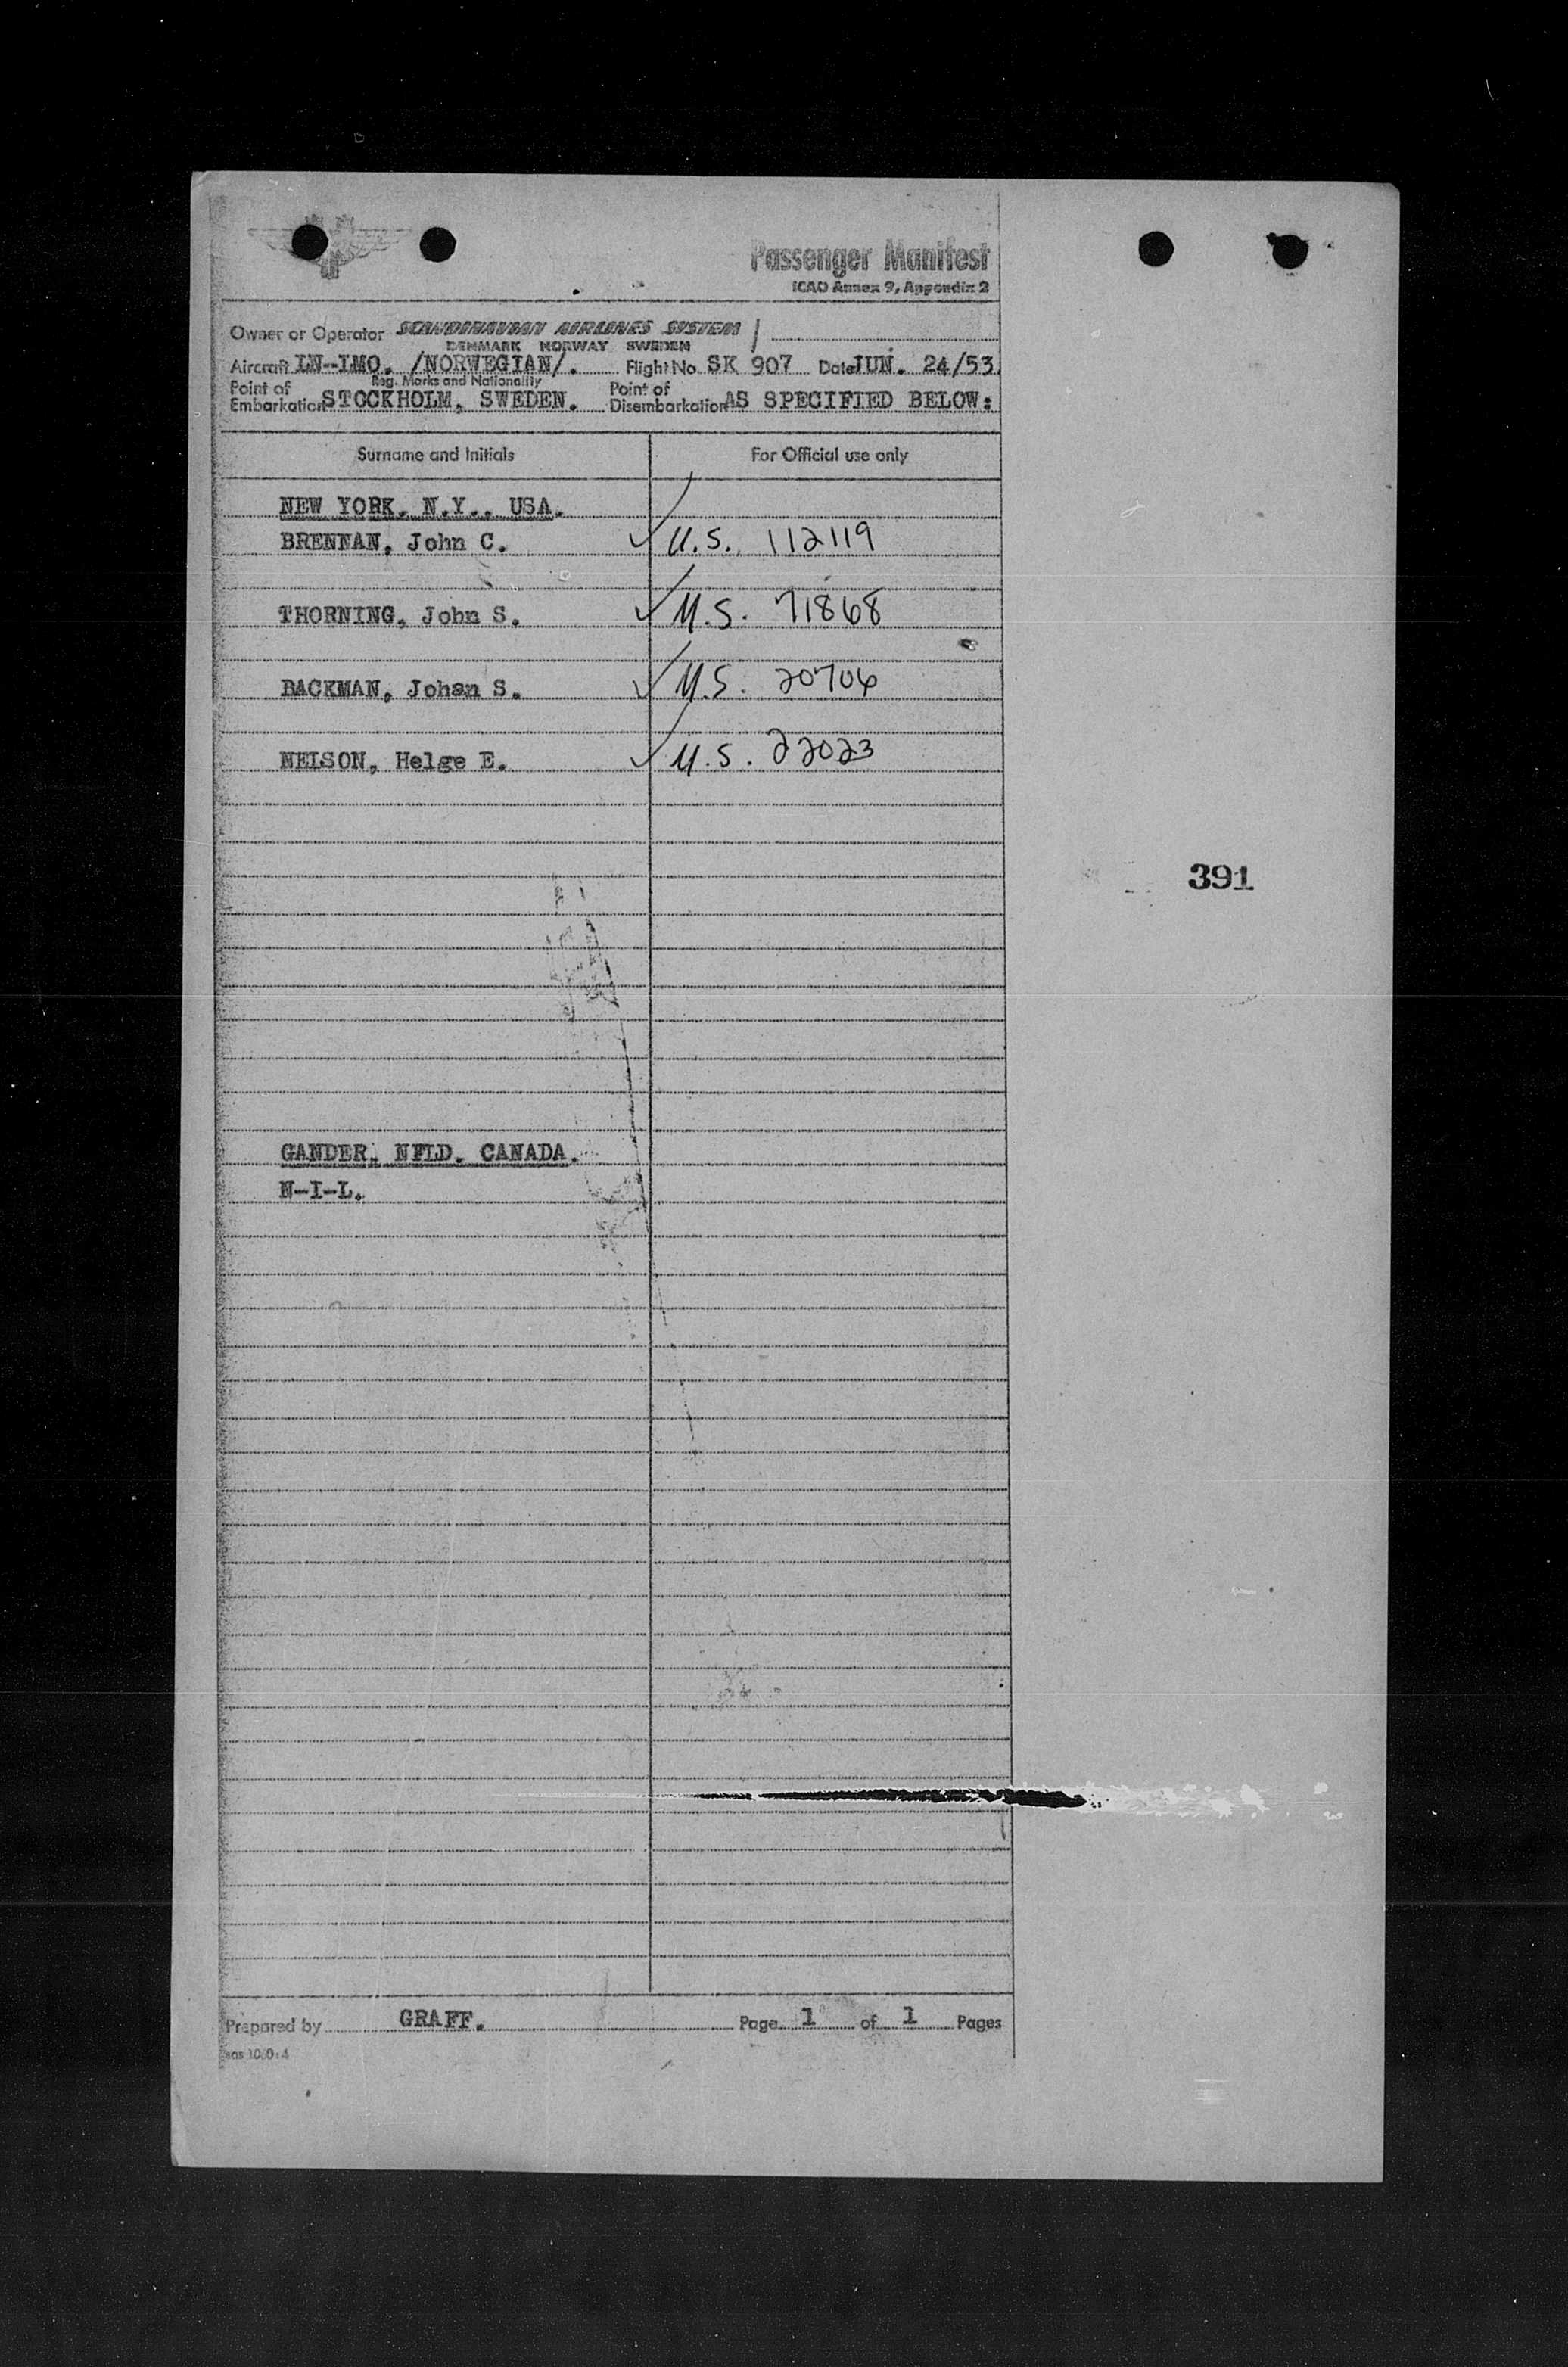 Passenger Manifest
ICAO Annex 9, Appendix 2
Owner or Operator SCANDINAVIAN AIRLINES SYSTEM
DENMARK NORWAY SWEDEN
Aircraft LN-LMO. /NORWEGIAN/. Flight No. SK 907 Date JUN. 24/53
Reg. Marks and Nationality
Point of Embarkation STOCKHOLM, SWEDEN. Point of Disembarkation AS SPECIFIED BELOW:
Surname and Initials For Official use only
NEW YORK, N.Y., USA.
BRENNAN, John C. ✓ U.S. 112119
THORNING, John S. ✓ U.S. 71868
BACKMAN, Johan S. ✓ U.S. 20706
NELSON, Helge E. ✓ U.S. 22023
391
GANDER, NFLD. CANADA.
N-I-L.
Prepared by GRAFF. Page 1 of 1 Pages